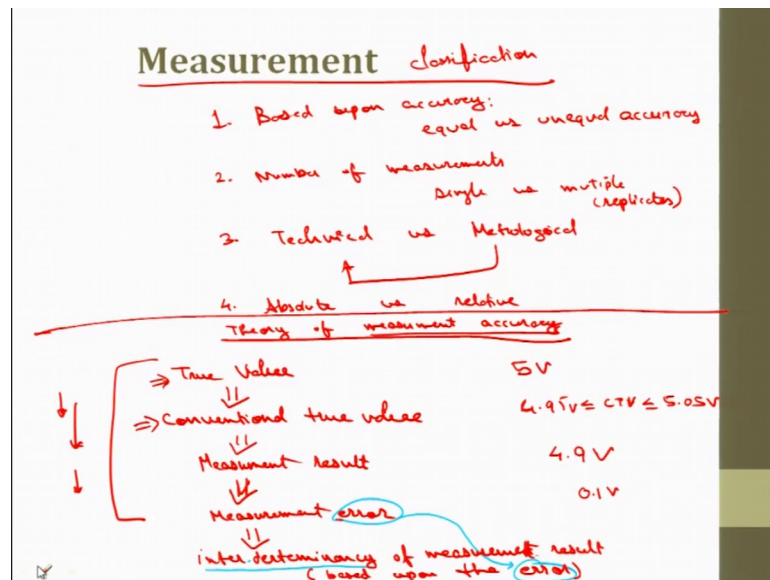 Measurement classification
1. Based upon accuracy:
equal vs unequal accuracy
2. Number of measurements
single vs mutiple
(replicates)
3. Technical vs Metrological
4. Absolute vs relative
Theory of measurment accuracy
⇒ True Value 5V
⇒ Conventional true value 4.95V ≤ CTV ≤ 5.05V
Measurment result 4.9V
Measurement error 0.1V
inter-determinancy of measurement result
(based upon the error)